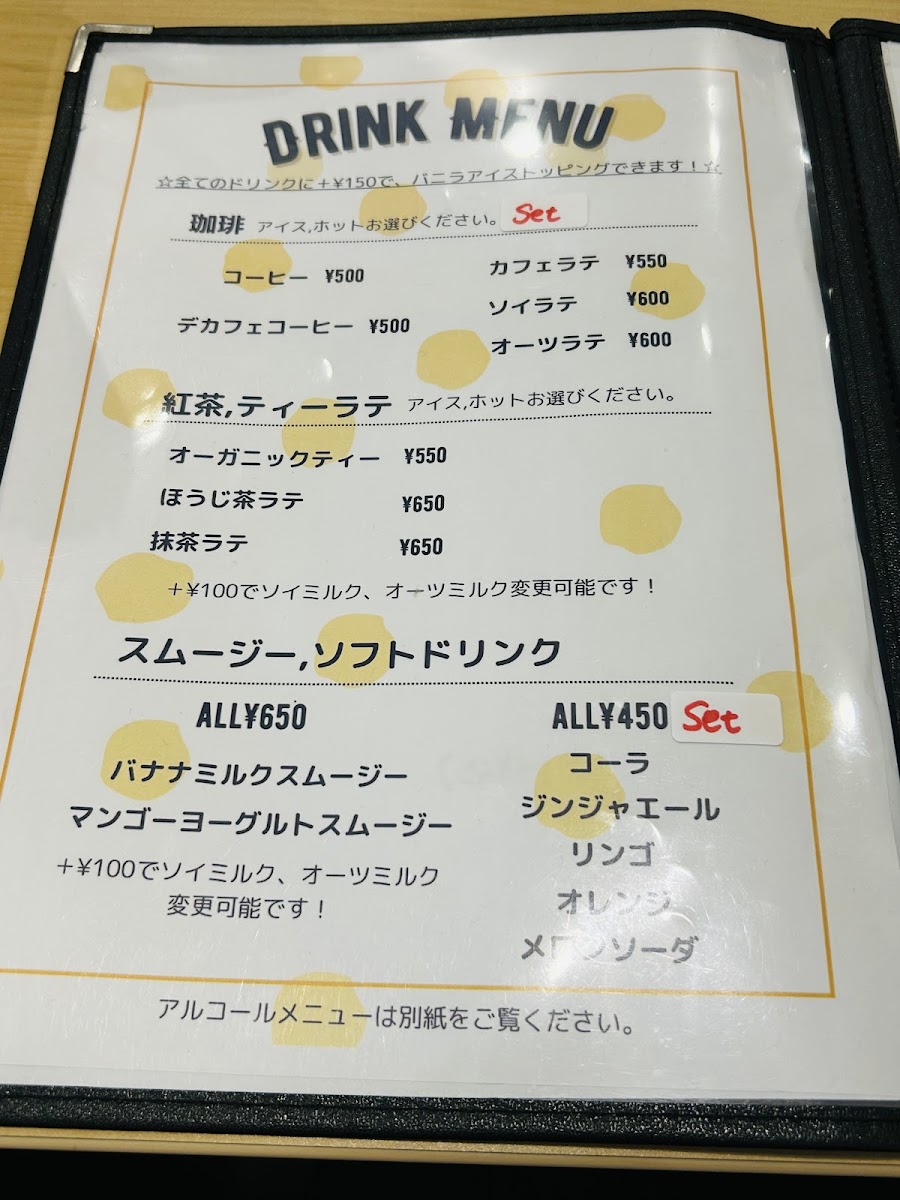 DRINK MENU
☆全てのドリンクに+¥150で、バニラアイストッピングできます!☆
珈琲 アイス,ホットお選びください。 Set
コーヒー ¥500
デカフェコーヒー ¥500
カフェラテ ¥550
ソイラテ ¥600
オーツラテ ¥600
紅茶,ティーラテ アイス,ホットお選びください。
オーガニックティー ¥550
ほうじ茶ラテ ¥650
抹茶ラテ ¥650
+¥100でソイミルク、オーツミルク変更可能です!
スムージー,ソフトドリンク
ALL¥650
バナナミルクスムージー
マンゴーヨーグルトスムージー
+¥100でソイミルク、オーツミルク
変更可能です!
ALL¥450 Set
コーラ
ジンジャエール
リンゴ
オレンジ
メロンソーダ
アルコールメニューは別紙をご覧ください。